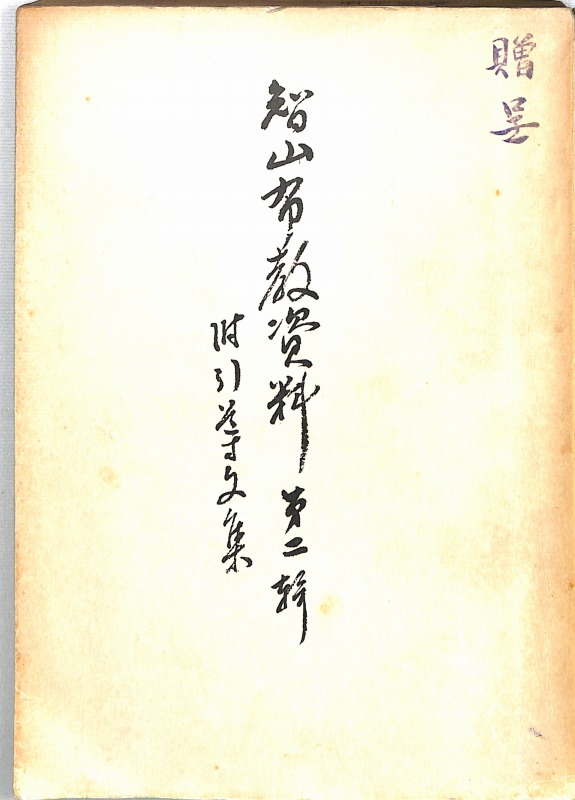 贈呈
智山布教資料 第二輯
附引導文集